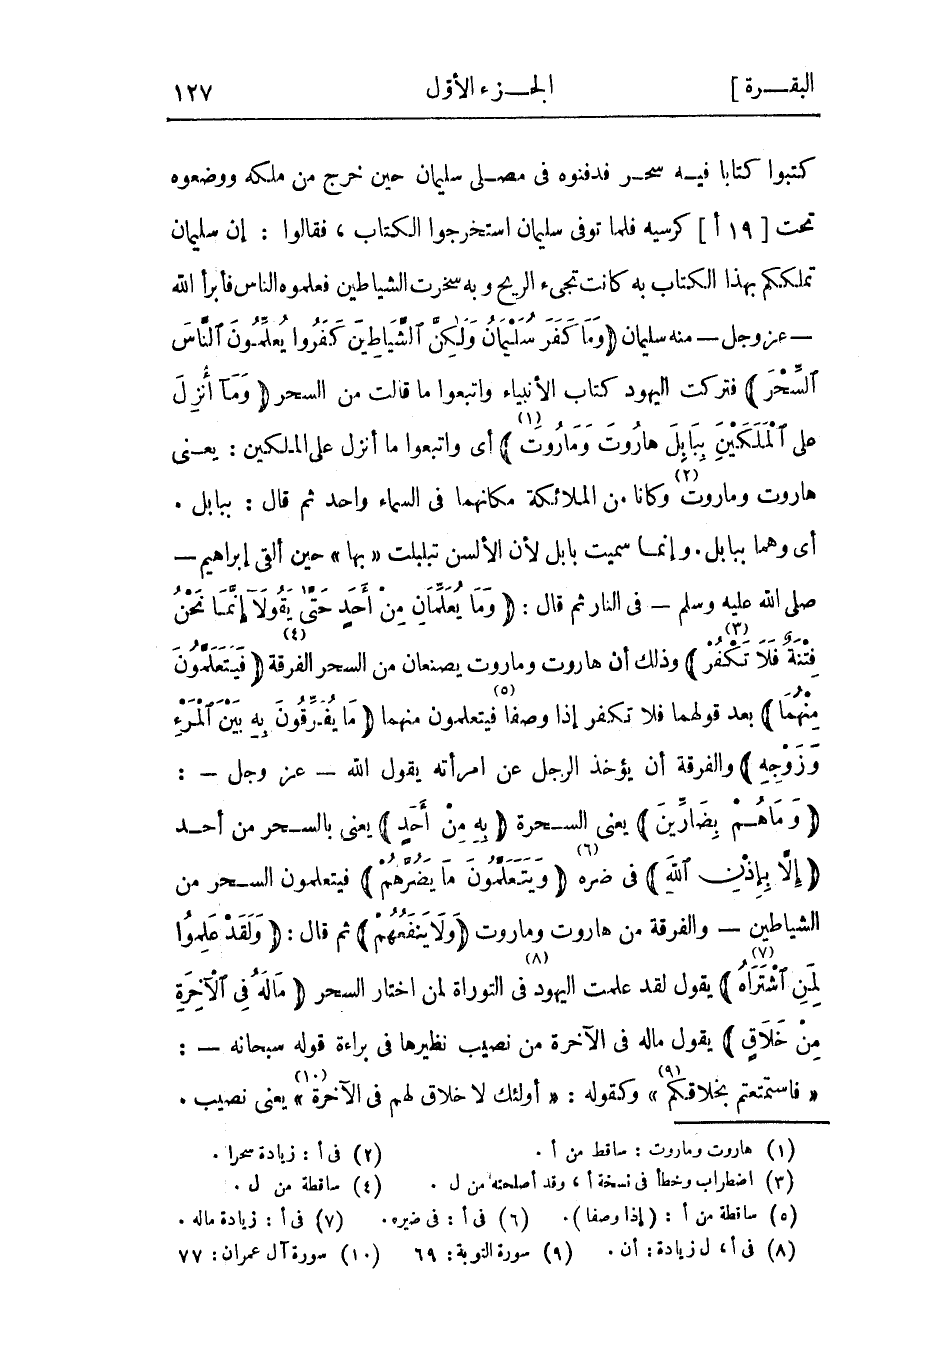 البقـــرة ] الجـــزء الأول ١٢٧
كتبوا كتابا فيـه سحـر فدفنوه فى مصـلى سليمان حين خرج من ملكه ووضعوه
تحت [ ١٩ أ ] كرسيه فلما توفى سليمان استخرجوا الكتاب ، فقالوا : إن سليمان
تملككم بهذا الكتاب به كانت تجىء الريح وبه سخرت الشياطين فعلموه الناس فأبرأ الله
— عز وجل — منه سليمان ﴿ وَمَا كَفَرَ سُلَيْمَانُ وَلَـٰكِنَّ ٱلشَّيَاطِينَ كَفَرُوا يُعَلِّمُونَ ٱلنَّاسَ
ٱلسِّحْرَ ﴾ فتركت اليهود كتاب الأنبياء واتبعوا ما قالت من السحر ﴿ وَمَآ أُنزِلَ
على ٱلْمَلَكَيْنِ بِبَابِلَ هَارُوتَ وَمَارُوتَ (١) ﴾ أى واتبعوا ما أنزل على الملكين : يعـنى
هاروت وماروت (٢) وكانا من الملائكة مكانهما فى السماء واحد ثم قال : ببابل .
أى وهما ببابل . وإنمـا سميت بابل لأن الألسن تبلبلت « بها » حين ألقى إبراهيم —
صلى الله عليه وسلم — فى النار ثم قال : ﴿ وَمَا يُعَلِّمَانِ مِنْ أَحَدٍ حَتَّىٰ يَقُولَآ إِنَّمَـا نَحْنُ
فِتْنَةٌ فَلَا تَكْفُرْ (٣) ﴾ وذلك أن هاروت وماروت يصنعان من السحر الفرقة (٤) ﴿ فَيَتَعَلَّمُونَ
مِنْهُمَا ﴾ بعد قولهما فلا تكفر إذا وصفا (٥) فيتعلمون منهما ﴿ مَا يُفَرِّقُونَ بِهِ بَيْنَ ٱلْمَرْءِ
وَزَوْجِهِ ﴾ والفرقة أن يؤخذ الرجل عن امرأته يقول الله — عز وجل — :
﴿ وَمَاهُـمْ بِضَارِّينَ ﴾ يعنى السـحرة ﴿ بِهِ مِنْ أَحَدٍ ﴾ يعنى بالسـحر من أحـد
﴿ إِلَّا بِإِذْنِ ٱللَّهِ ﴾ فى ضره (٦) ﴿ وَيَتَعَلَّمُونَ مَا يَضُرُّهُمْ ﴾ فيتعلمون السـحر من
الشياطين — والفرقة من هاروت وماروت ﴿ وَلَا يَنفَعُهُمْ ﴾ ثم قال : ﴿ وَلَقَدْ عَلِمُوا
لَمَنِ ٱشْتَرَاهُ (٧) ﴾ يقول لقد علمت اليهود فى (٨) التوراة لمن اختار السحر ﴿ مَالَهُ فِى ٱلْآخِرَةِ
مِنْ خَلَاقٍ ﴾ يقول ماله فى الآخرة من نصيب نظيرها فى براءة قوله سبحانه — :
« فاستمتعتم بخلاقكم (٩) » وكقوله : « أولئك لا خلاق لهم فى الآخرة (١٠) » يعنى نصيب .
(١) هاروت وماروت : ساقط من أ . (٢) فى أ : زيادة سحرا .
(٣) اضطراب وخطأ فى نسخة أ ، وقد أصلحته من ل . (٤) ساقطة من ل .
(٥) ساقطة من أ : ( إذا وصفا ) . (٦) فى أ : فى ضيره . (٧) فى أ : زيادة ماله .
(٨) فى أ ، ل زيادة : أن . (٩) سورة التوبة : ٦٩ (١٠) سورة آل عمران : ٧٧